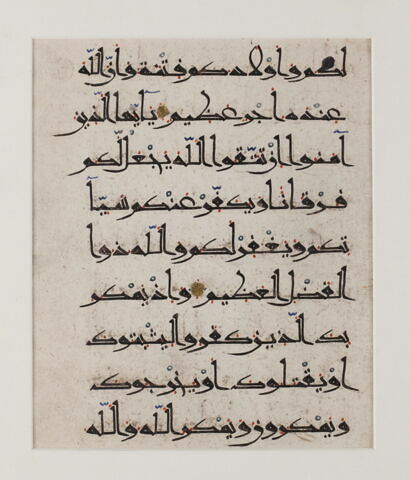 لكم وأولادكم فتنة وأنّ الله
عنده أجر عظيم يأيها الذين
آمنوا إن تتّقوا الله يجعل لّكم
فرقانا ويكفّر عنكم سيّآ
تكم ويغفر لكم والله ذوا
الفضل العظيم وإذ يمكر
بك الّذين كفروا ليثبتوك
أو يقتلوك أو يخرجوك
ويمكرون ويمكر الله والله